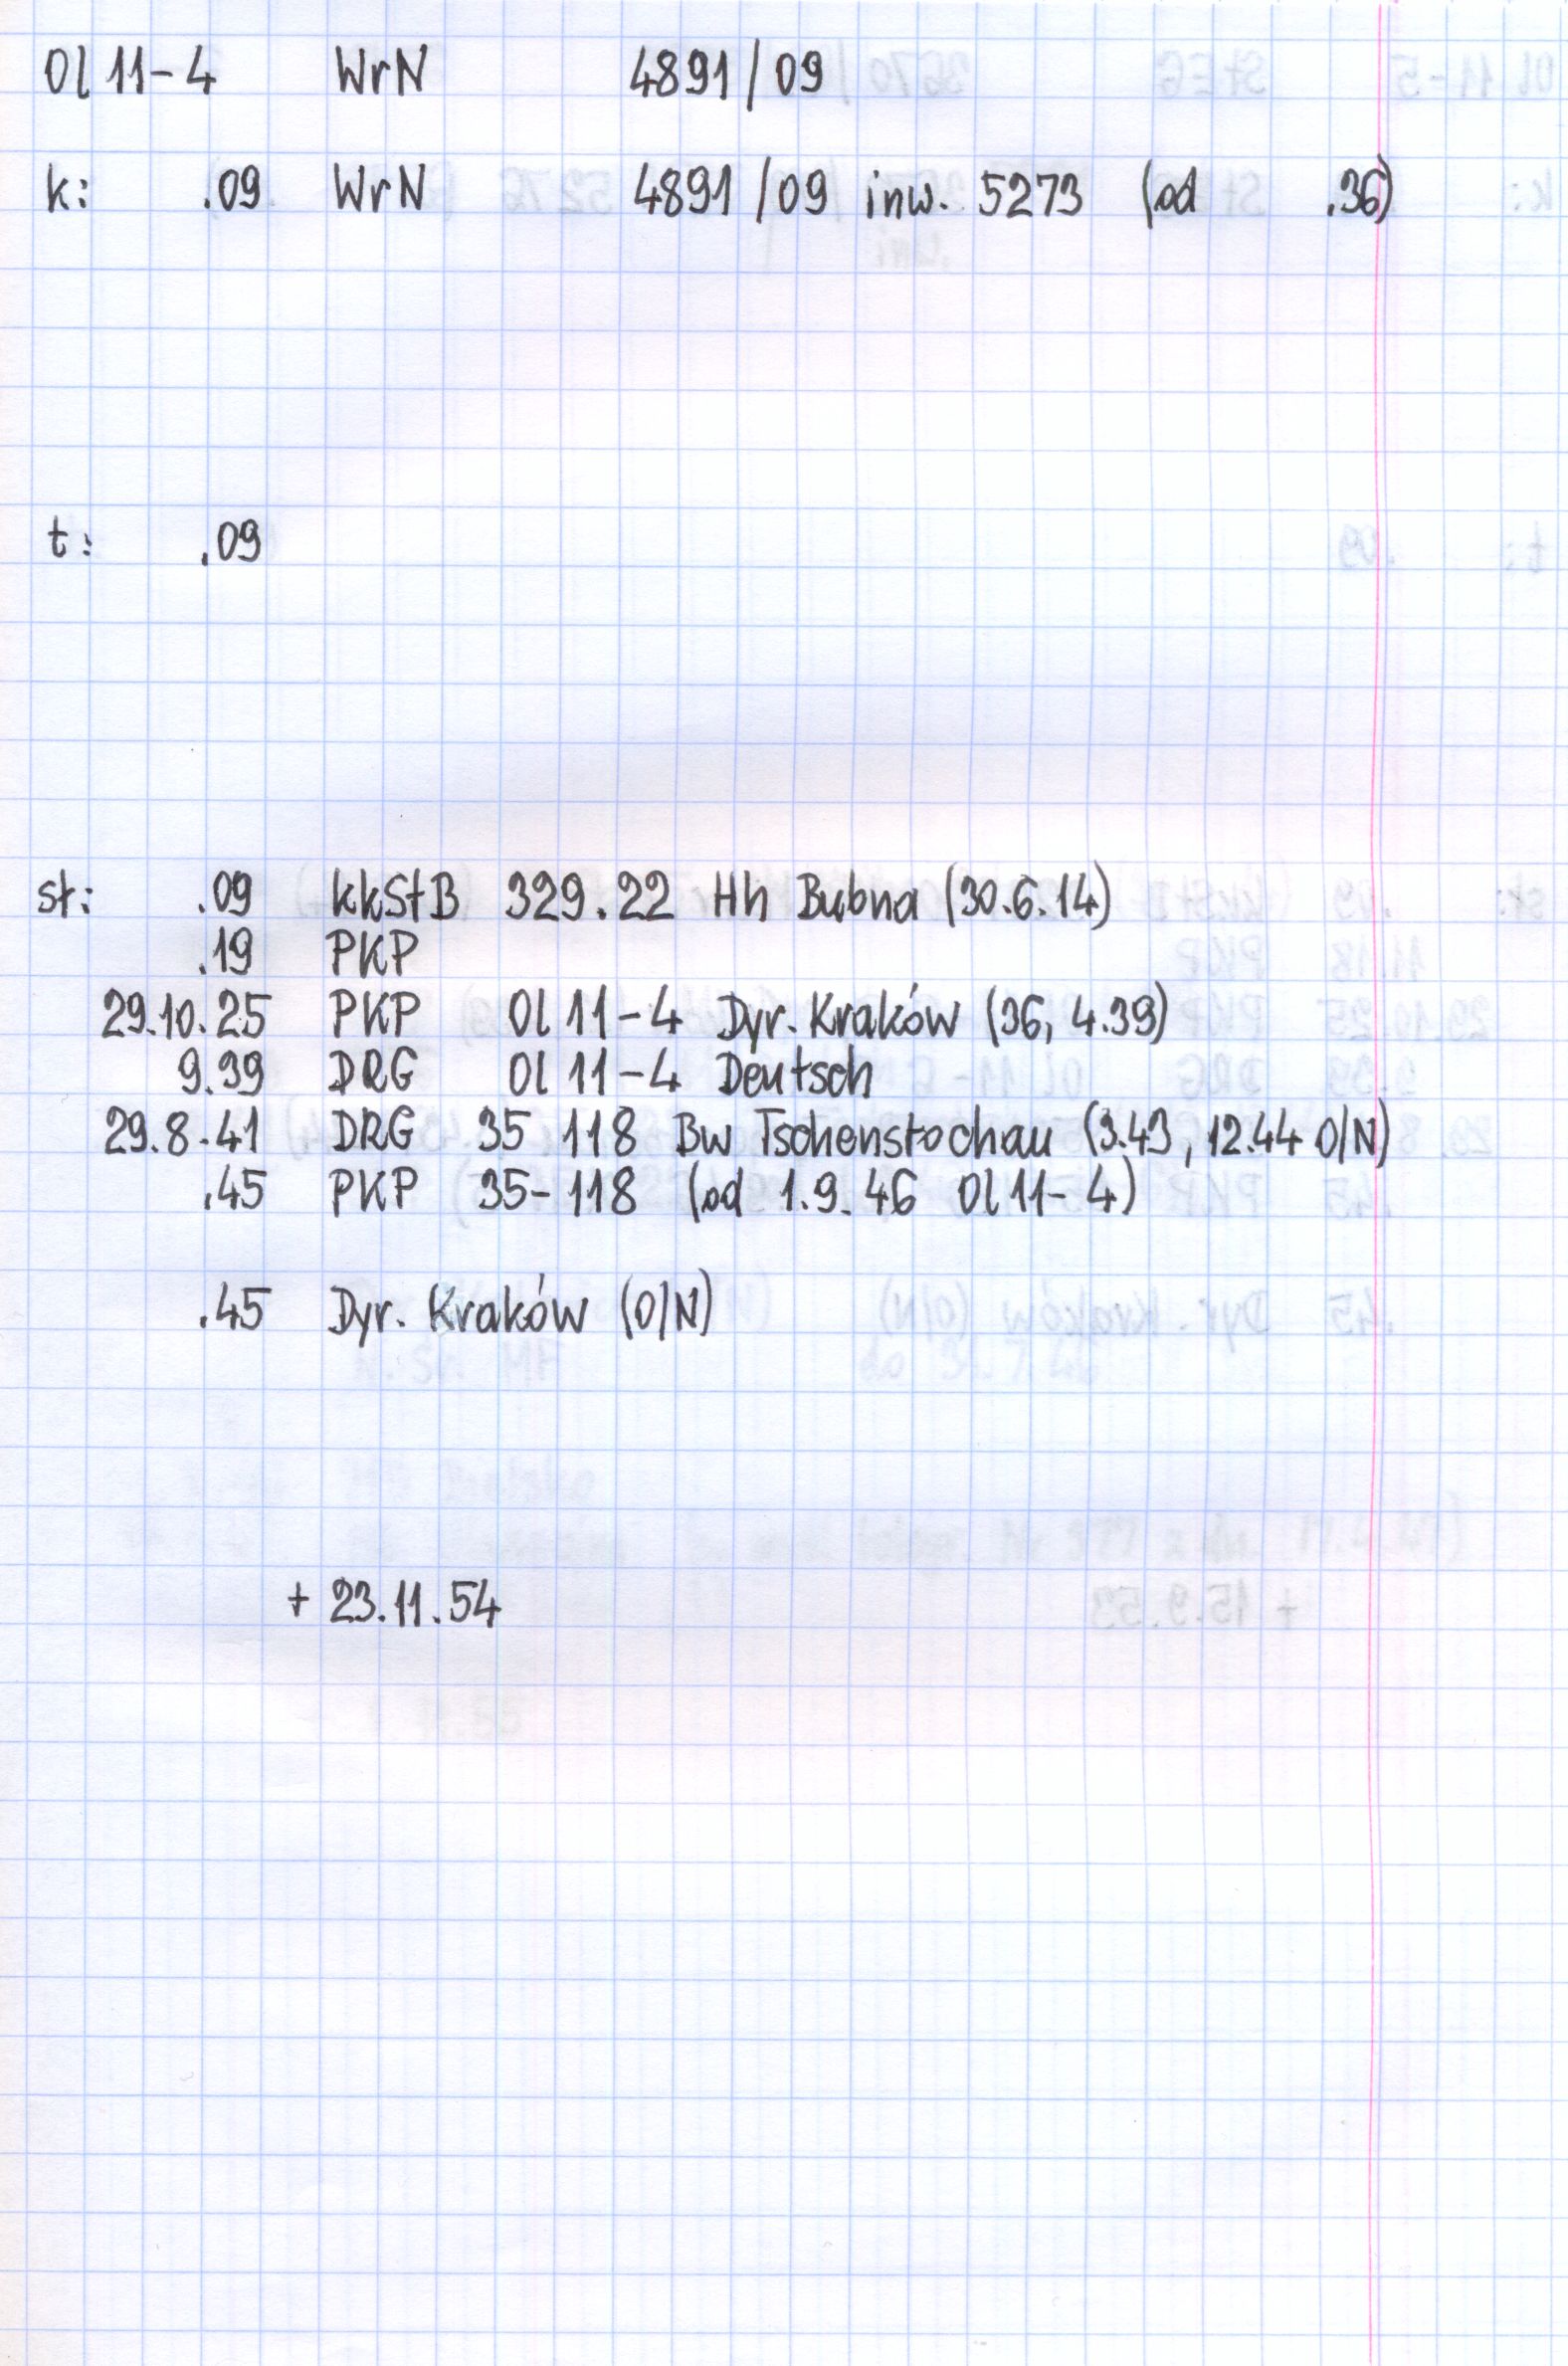 Ol 11-4 WrN 4891/09
k: .09 WrN 4891/09 inw. 5273 (od .36)
t: .09
st: .09 kkStB 329.22 Hh Bubna (30.6.14)
.19 PKP
29.10.25 PKP Ol 11-4 Dyr. Kraków (36, 4.39)
9.39 DRG Ol 11-4 Deutsch
29.8.41 DRG 35 118 Bw Tschenstochau (3.43, 12.44 O/N)
.45 PKP 35-118 (od 1.9.46 Ol 11-4)
.45 Dyr. Kraków (O/N)
+ 23.11.54